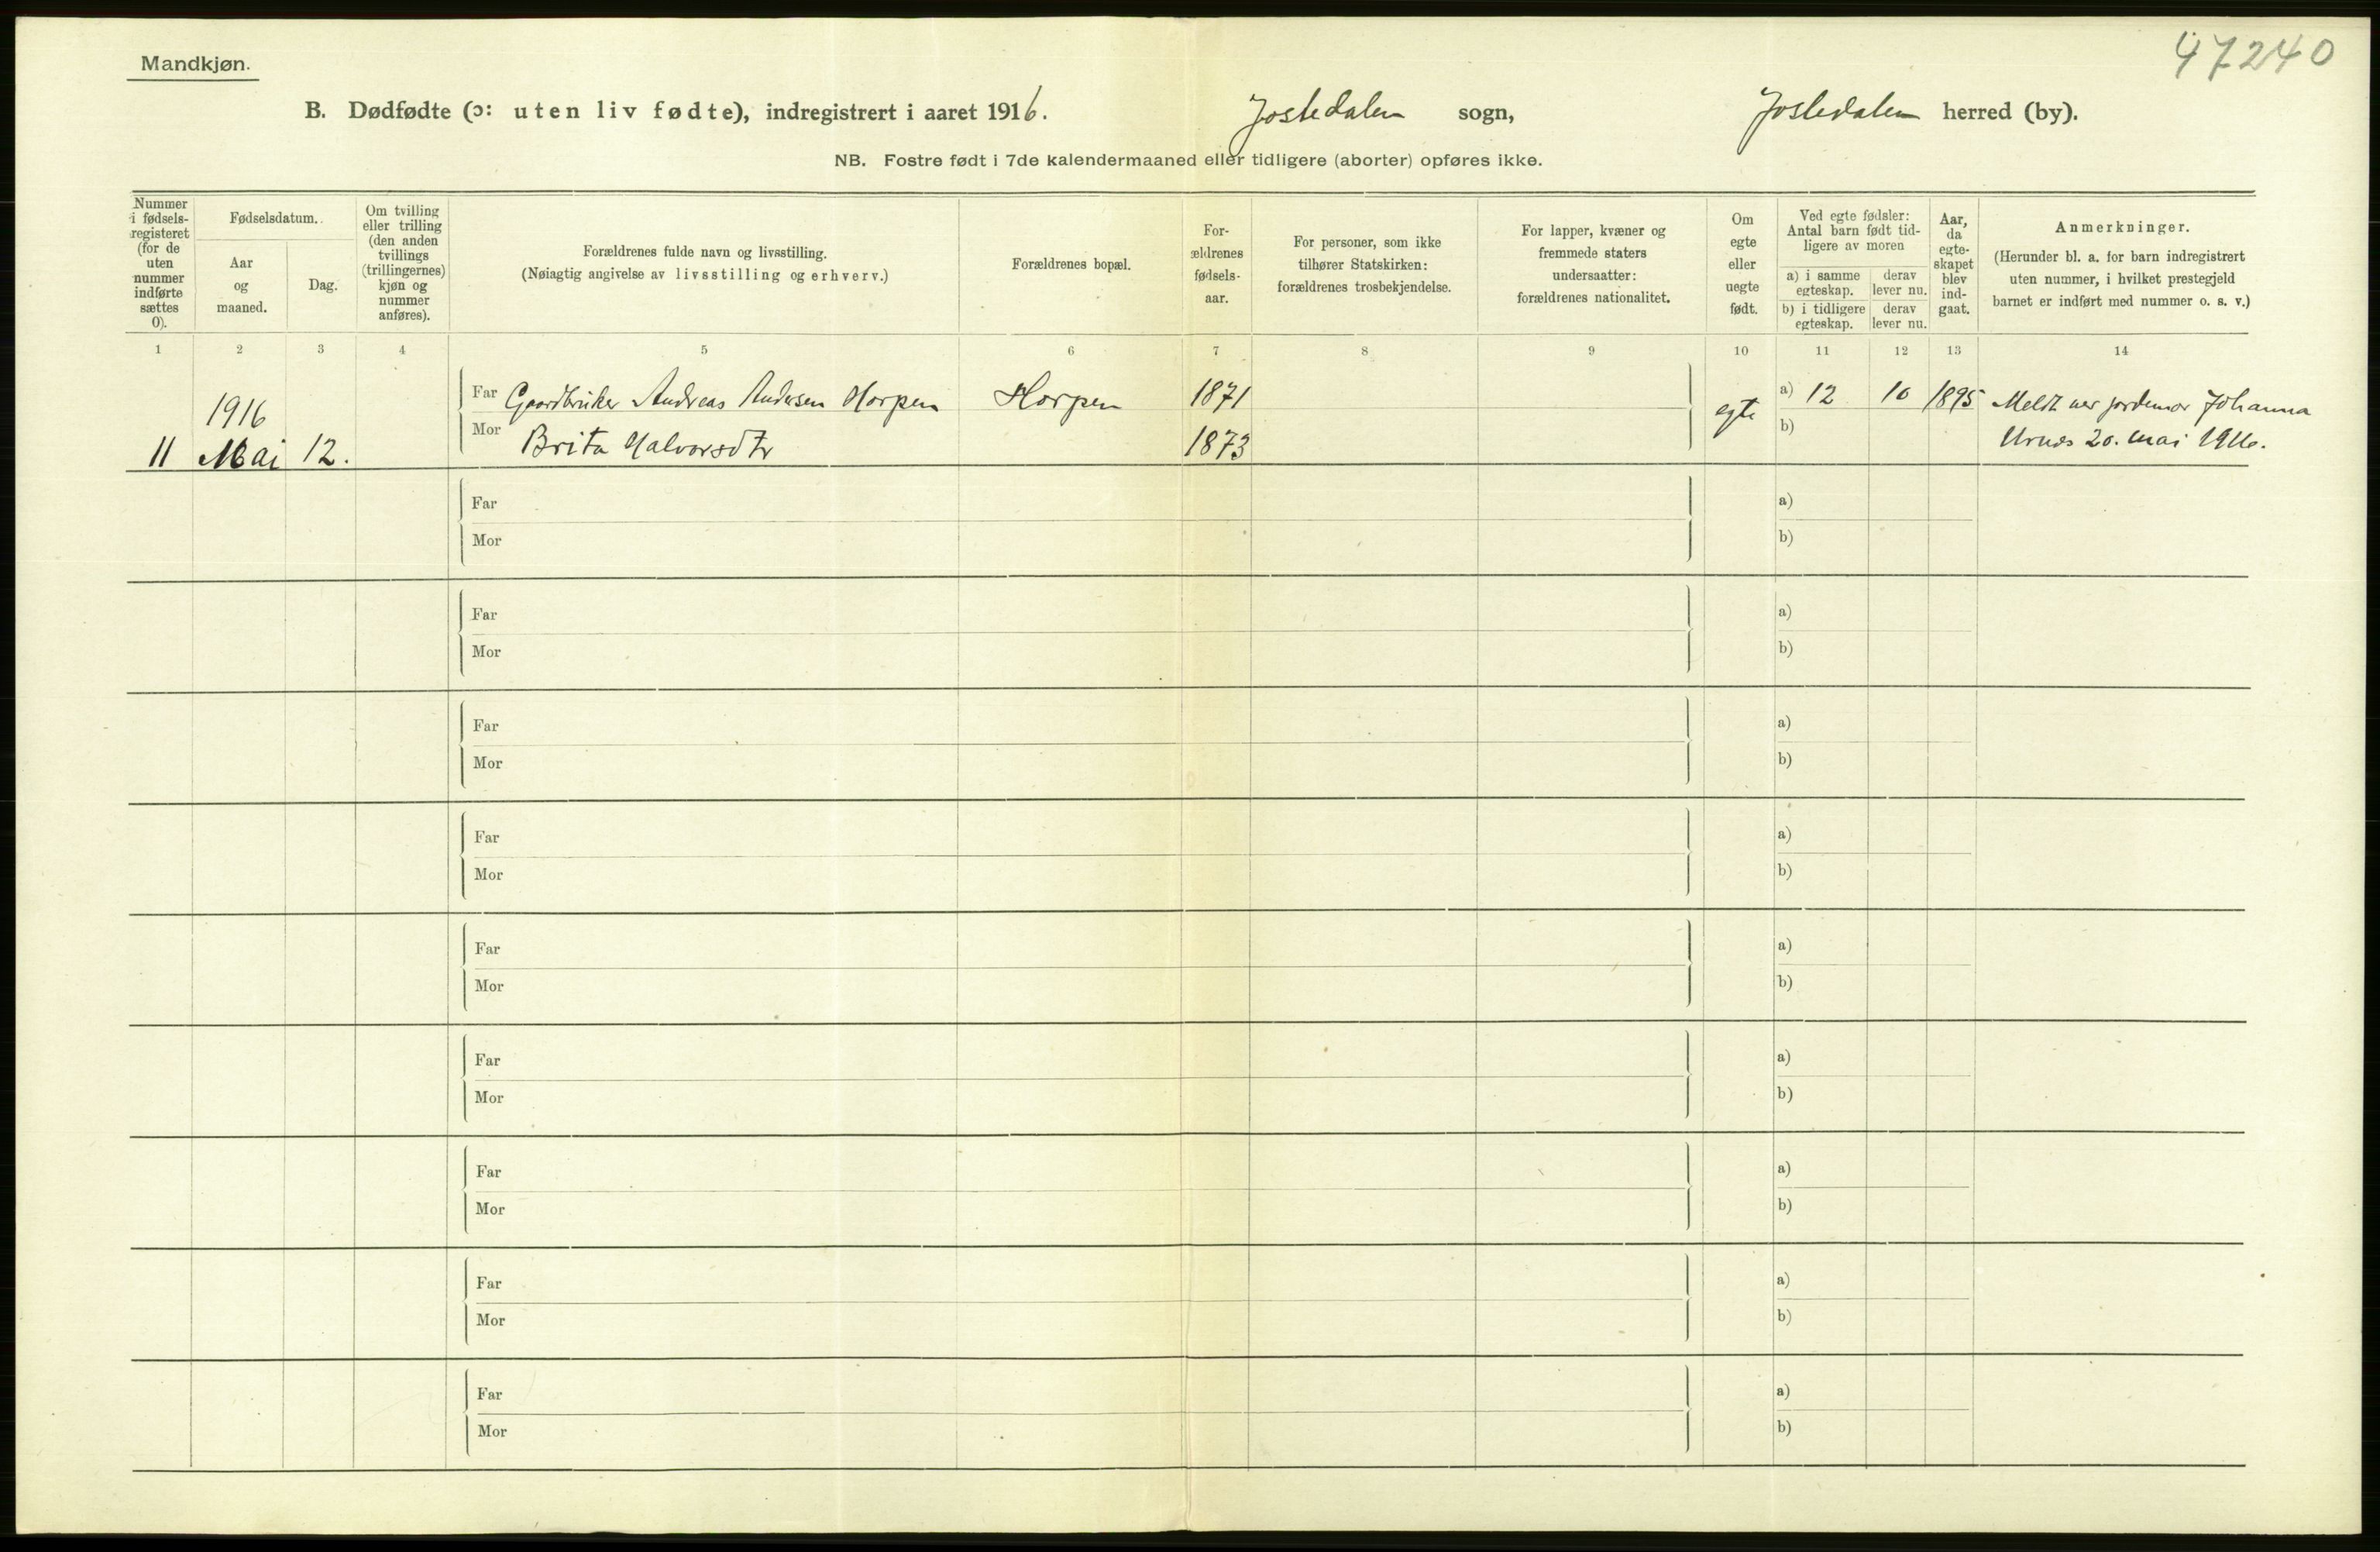 47240
Mandkjøn.
B. Dødfødte (ɔ: uten liv fødte), indregistrert i aaret 1916. Jostedalen sogn, Jostedalen herred (by).
NB. Fostre født i 7de kalendermaaned eller tidligere (aborter) opføres ikke.
Nummer
i fødsels-
registeret
(for de
uten
nummer
indførte
sættes
0).
Fødselsdatum.
Aar
og
maaned.
Dag.
Om tvilling
eller trilling
(den anden
tvillings
(trillingernes)
kjøn og
nummer
anføres).
Forældrenes fulde navn og livsstilling.
(Nøiagtig angivelse av livsstilling og erhverv.)
Forældrenes bopæl.
For-
ældrenes
fødsels-
aar.
For personer, som ikke
tilhører Statskirken:
forældrenes trosbekjendelse.
For lapper, kvæner og
fremmede staters
undersaatter:
forældrenes nationalitet.
Om
egte
eller
uegte
født.
Ved egte fødsler:
Antal barn født tid-
ligere av moren
a) i samme
egteskap.
derav
lever nu.
b) i tidligere
egteskap.
derav
lever nu.
Aar,
da
egte-
skapet
blev
ind-
gaat.
Anmerkninger.
(Herunder bl. a. for barn indregistrert
uten nummer, i hvilket prestegjeld
barnet er indført med nummer o. s. v.)
1 2 3 4 5 6 7 8 9 10 11 12 13 14
Far Gaardbruker Andreas Andersen Horpen Horpen 1871 a) 12 10 1895 Meldt jordemor Johanna
1916 egte
11 Mai 12. Mor Brita Halvorsdtr 1873 b) Urnes 20. mai 1916.
Far a)
Mor b)
Far a)
Mor b)
Far a)
Mor b)
Far a)
Mor b)
Far a)
Mor b)
Far a)
Mor b)
Far a)
Mor b)
Far a)
Mor b)
Far a)
Mor b)